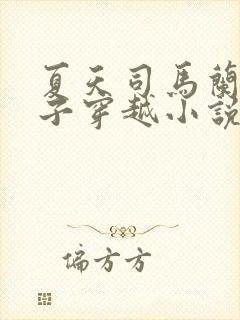 夏天司马蘭
子穿越小說
偏方方